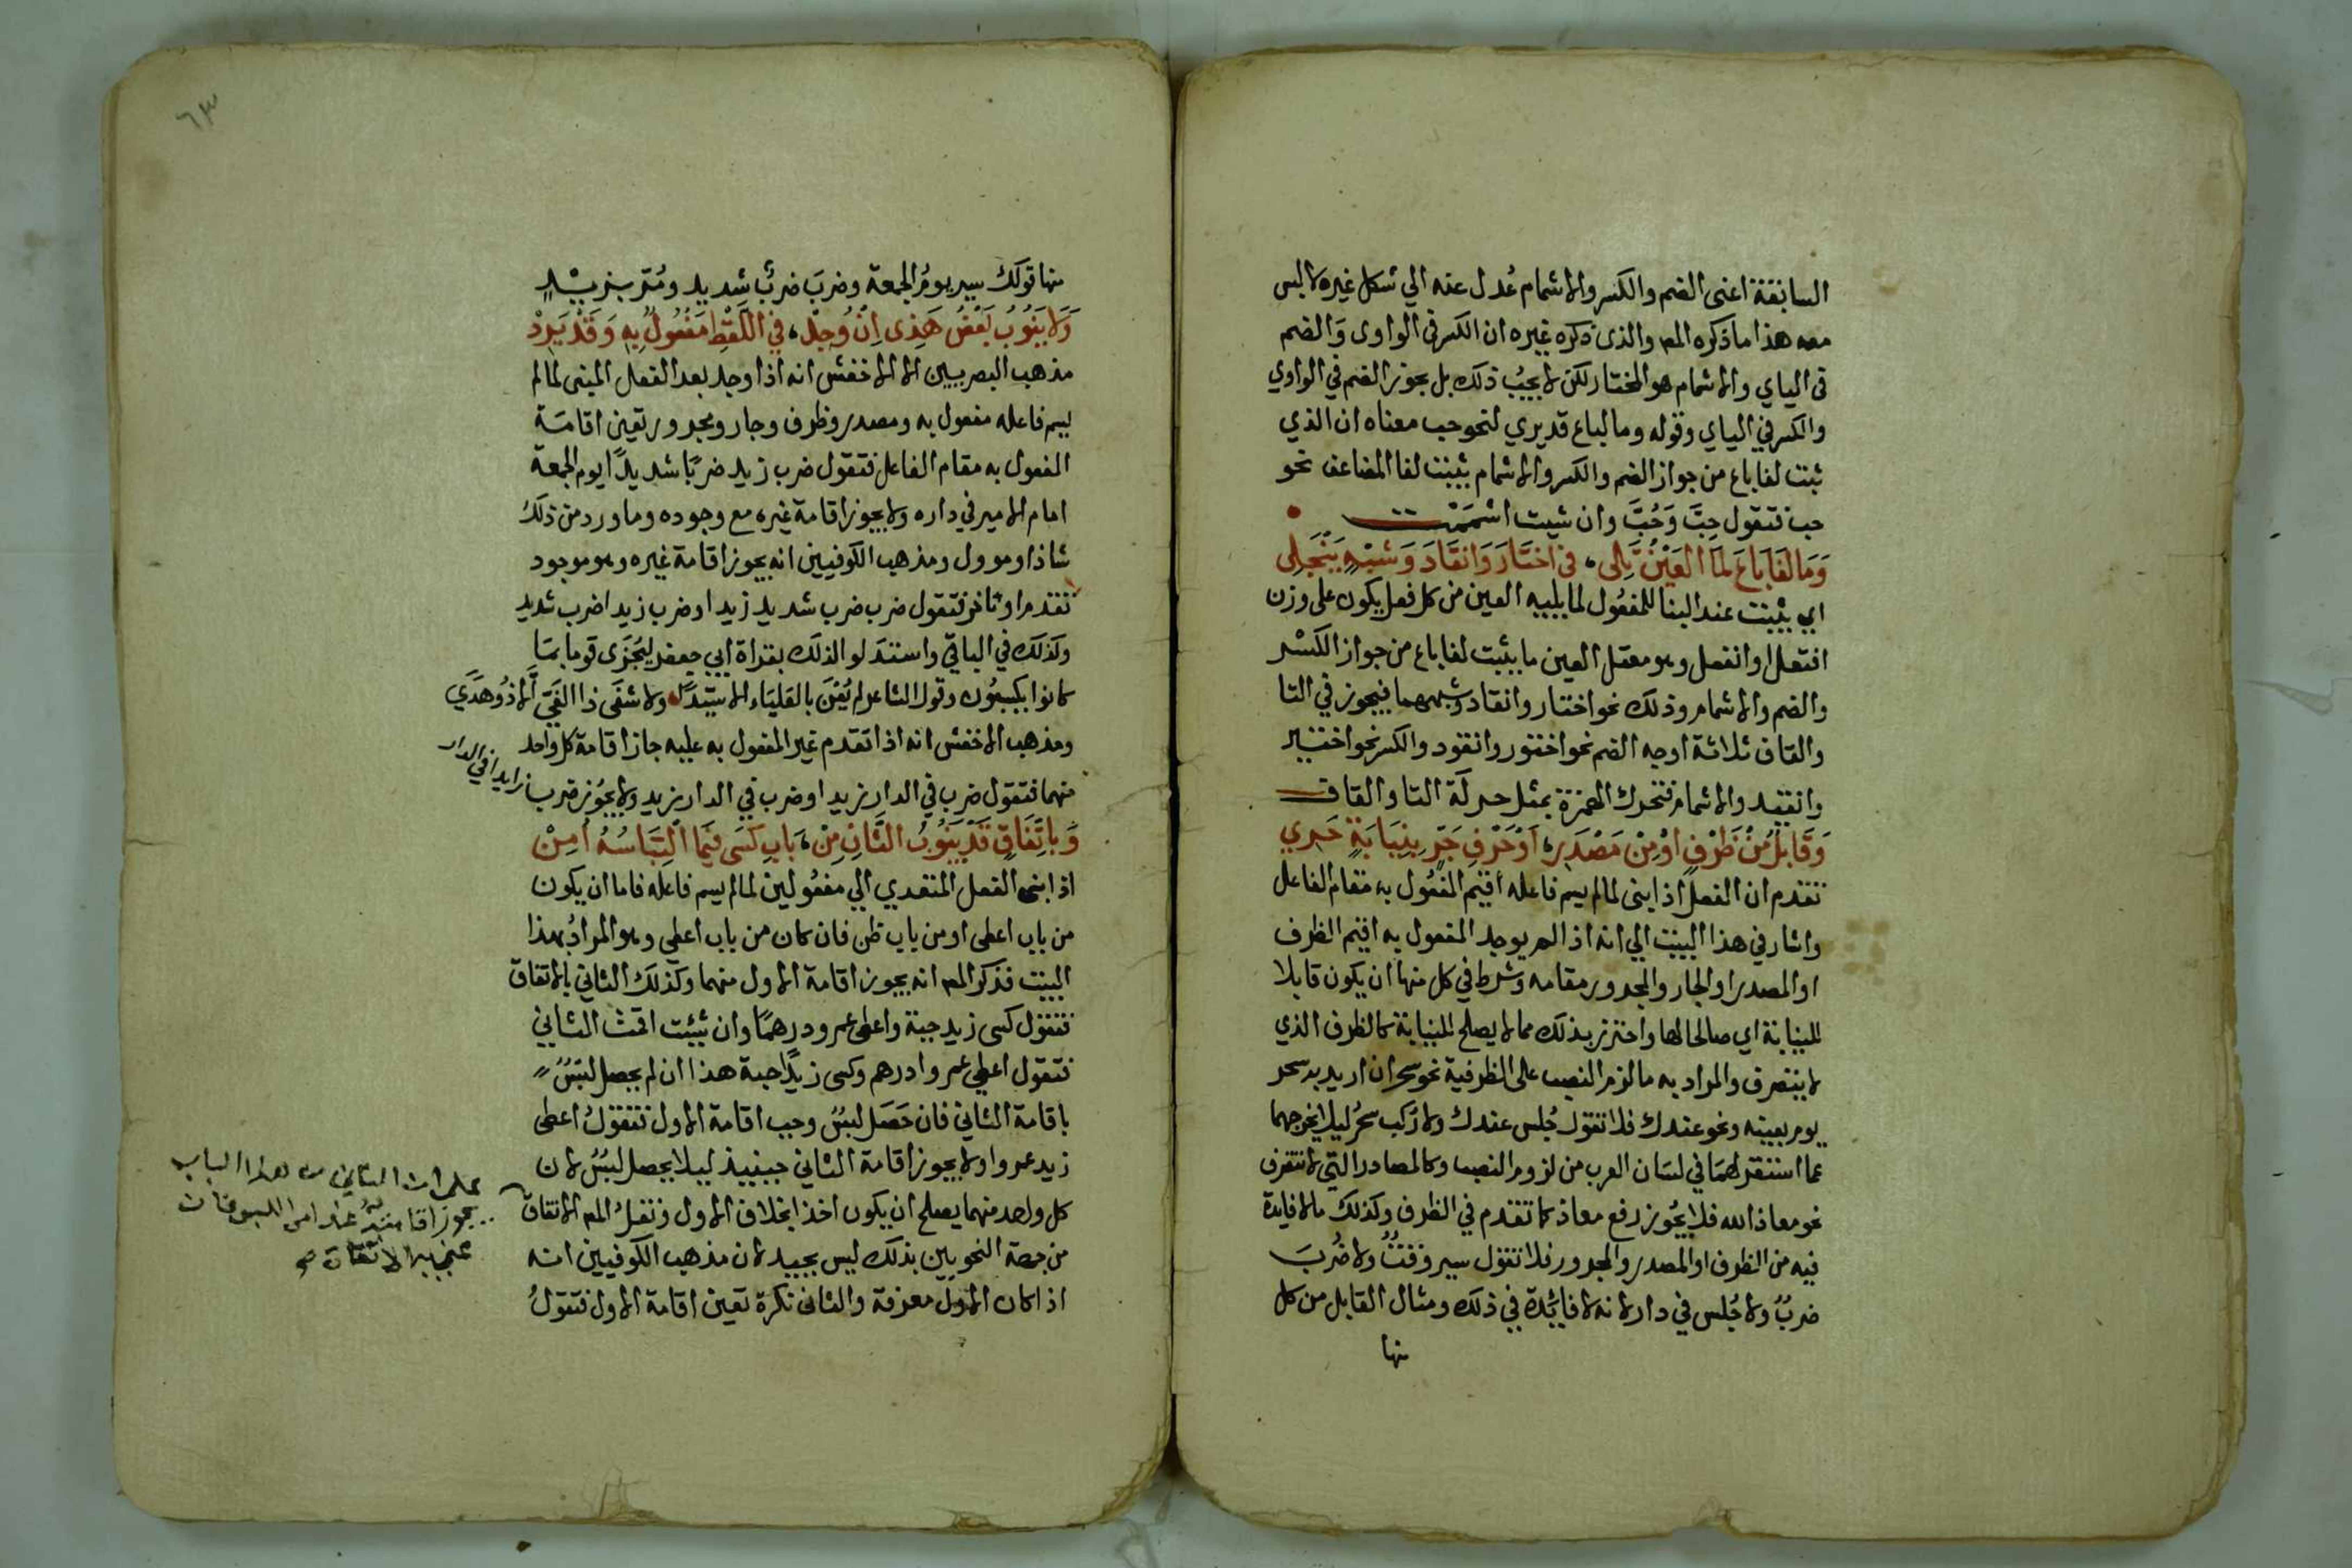 السابقة اعنى الضم والكسر والاشمام عُدل عنه الي شكل غيره لا لبس
معه هذا ما ذكره المصـ والذى ذكره غيره ان الكسر في الواوى وَالضم
في الياي والاشمام هو المختار لكن لا يجبُ ذلك بل يجوز الضم في الواوي
والكسر في الياي وقوله وما لباع قد يري لنحو حب معناه ان الذي
ثبت لفا باع من جواز الضم والكسر والاشمام يثبت لفا المضاعف نحو
حب فتقول حِبَّ وَحُبَّ وان شيت اشممت
وَمَا لفَا بَاعَ لَمَا العَيْنُ تَلِى، في اخْتَارَ وَانقَادَ وَشبْهٍ يَنْجَلِى
اي يثبت عند البنا للمفعُول لما يليه العين من كل فعل يكون على وزن
افتعل او انفعل وهو معتل العين ما يثبت لفا باع من جواز الكَسْر
والضم والاشمام وذلك نحو اختار وانقاد وشبههما فيجوز في التا
والقاف ثلاثة اوجه الضم نحو اختور وانقود والكسر نحو اختير
وانقيد والاشمام فتحرك الهمزة بمثل حركَة التا والقاف
وَقَابِلٌ مُنْ ظَرْفٍ اوْ مِنْ مَصْدَرِ، اَوْ حَرْفِ جَرٍّ بِنِيَابَةٍ حَرِي
تقدم ان الفعل اذا بنى لما لم يسم فاعله اقيم المفعُول به مقام الفاعل
واشار في هذا البيت الي انه اذا لم يوجد المفعول به اقيم الظرف
او المصدر او الجار والمجرور مقامه وشرط في كل منها ان يكون قابلا
للنيابة اي صالحا لها واحترز بذلك مما لا يصلح للنيابة كالظرف الذي
لا يتصرف والمراد به ما لزم النصب على الظرفية نحو سحر ان اريد به سحر
يوم بعينه ونحو عندك فلا تقول جُلس عندك ولا رُكب سحرُ ليلا يخرجهما
عما استقر لهمَا في لسَان العرب من لزوم النصب وكالمصادر التي لا تتصرف
نحو معاذ الله فلا يجُوز رفع معاذ كما تقدم في الظرف وكذلك ما لا فايدة
فيه من الظرف او المصدر والمجرور فلا تقول سير وَقتٌ ولا ضُربَ
ضربٌ ولا جُلس في دار لانه لا فايَدة في ذلك ومثال القابل من كل
منها
٦٣
منها قولَك سير يومُ الجمعة وضربَ ضربٌ شديد ومُرّ بزيْدٍ
وَلا يَنُوْبُ بَعْضُ هَذِى اِنْ وُجِدْ، في اللَفْظِ مَفْعُولٌ بِهِ وَقَدْ يَرِدْ
مذهب البصريين الا الاخفش انه اذا وجد بعد الفعل المبنى لما لم
يسم فاعله مفعول به ومصدر وظرف وجار ومجرور تعين اقامَة
المفعول به مقام الفاعل فتقول ضرب زيد ضربًا شديدًا يوم الجمعة
امام الامير في داره ولا يجوز اقامة غيره مع وجوده وما ورد من ذلكَ
شاذ او موول ومذهب الكوفيين انه يجوز اقامة غيره وهو موجود
تقدم او تاخر فتقول ضرب ضرب شديد زيدا وضرب زيدا ضرب شديد
وكذلك في الباقي واستدلوا لذلك بقراة ابي جعفر ليُجْزَى قوما بمَا
كانوا يكسبُون وقول الشاعر لم يُعْنَ بالعَليَاء الا سيّدًا، ولا شفَى ذا الغَيّ الا ذُو هدَي
ومذهب الاخفش انه اذا تقدم غير المفعول به عليه جاز اقامة كل واحد
منهما فتقول ضرب في الدار زيد او ضرب في الدار زيد ولا يجُوز ضرب زيدا في الدار
وَبِاتِّفَاقٍ قَدْ يَنُوْبُ الثَّانِ مِنْ، بَابِ كَسَى فِيْمَا الْتِبَاسُهُ اُمِنْ
اذا بنى الفعل المتعدي الي مفعُولين لما لم يسم فاعله فاما ان يكون
من باب اعطى او من باب ظن فان كان من باب اعطي وهو المرادُ بهذا
البيت فذكر المصـ انه يجوز اقامة الاول منهما وكذلك الثاني بالاتفاق
فتقول كسى زيد جبة واعطى عمرو درهمًا وان شيت اقمتَ الثاني
فتقول اعطي عمرا درهم وكسى زيدًا جبة هذا ان لم يحصل لبَسٌ
باقامة الثاني فان حَصَل لبسٌ وجب اقامة الاول فتقولُ اعطى
زيد عمروا ولا يجوز اقامة الثاني حينيذ ليلا يحصل لبسٌ لان
كل واحد منهما يصلح ان يكون اخذا بخلاف الاول ونقلُ المصـ الاتفاق
من جهة النحويين بذلك ليس بجيد لان مذهب الكوفيين انه
اذا كان الاول معرفة والثانى نكرة تعين اقامة الاول فتقولُ
على ان الثاني من هذا الباب
يجوز اقامته عند امن اللبس فان
عنى به الاتفاق